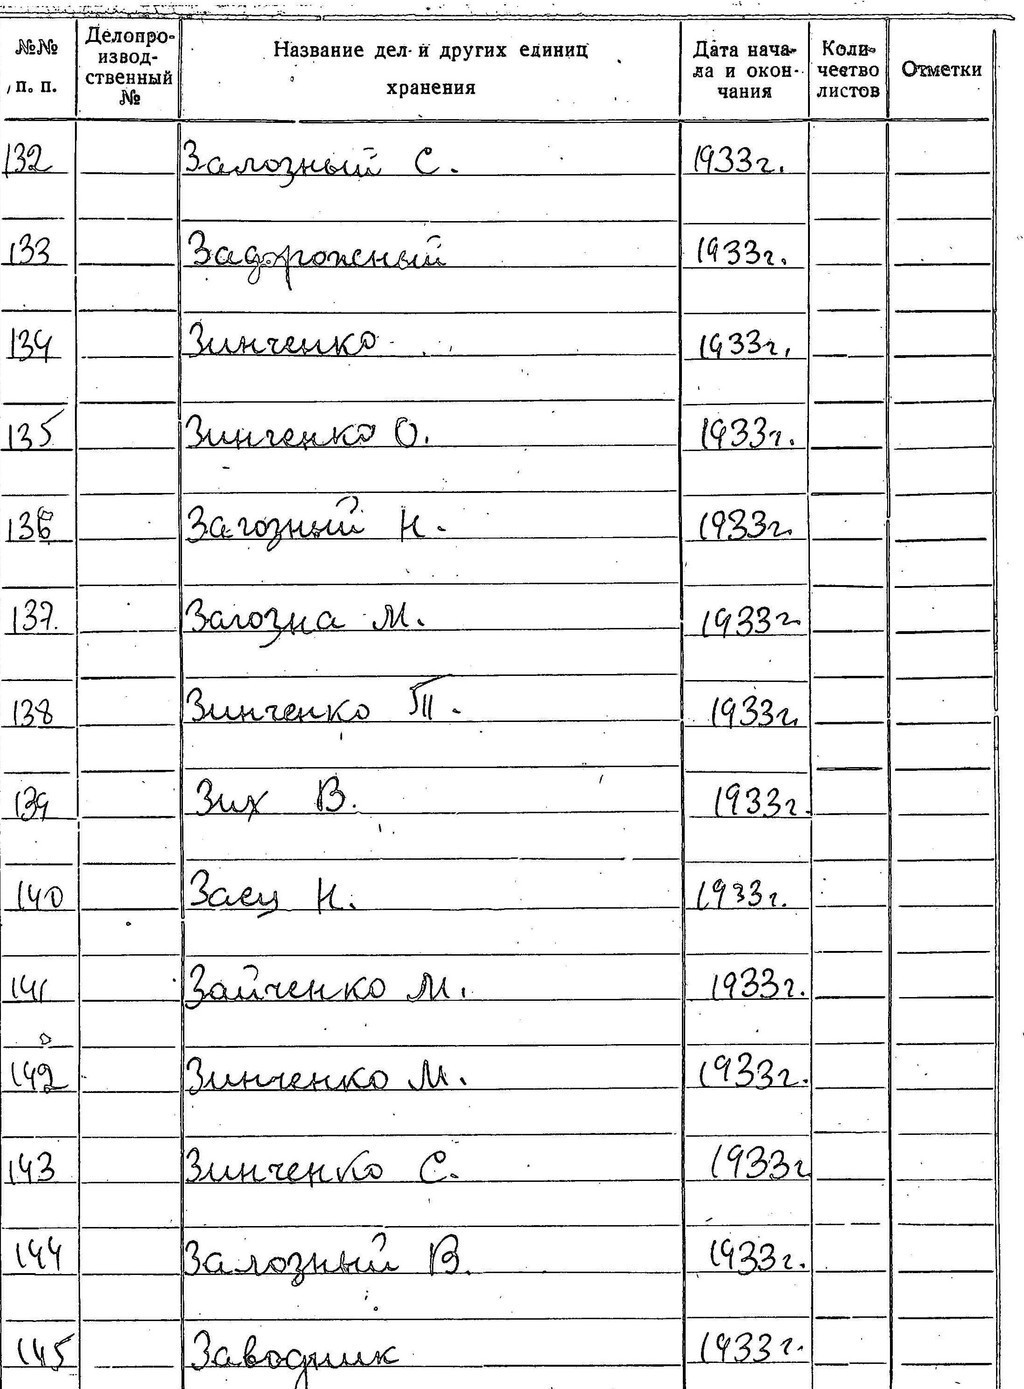 №№ п. п. Делопроизводственный № Название дел и других единиц хранения Дата начала и окончания Количество листов Отметки
132 Залозный С. 1933г.
133 Задорожный 1933г.
134 Зинченко 1933г.
135 Зинченко О. 1933г.
136 Загозный Н. 1933г.
137. Загозна М. 1933г
138 Зинченко П. 1933г.
139 Зих В. 1933г.
140 Заец Н. 1933г.
141 Зайченко М. 1933г.
142 Зинченко М. 1933г.
143 Зинченко С. 1933г
144 Залозный В. 1933г.
145 Заводник 1933г.